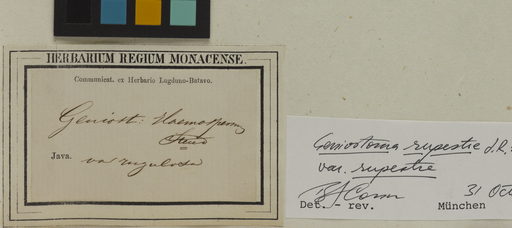 HERBARIUM REGIUM MONACENSE.
Communicat. ex Herbario Lugduno-Batavo.
Geniost: Haemospermum
Steud
Java. var rugulosa
Geniostoma rupestre J.R.
var. rupestre
BJConn 31 Oct
Det. - rev. München